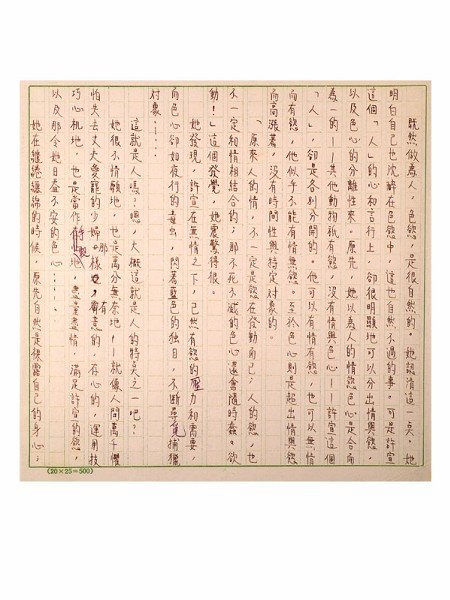 既然做為人，色慾，是很自然的。她認清這一点。她
明白自己也沈醉在色慾中，這也自然不過的事。可是許宣
這個「人」的心和言行上，卻很明顯地可以分出情與慾，
以及色心的分離性來。原先，她以為人的情慾色心是合而
為一的——其他動物祇有慾，沒有情與色心——許宣這個
「人」，卻是各別分開的。他可以有情有慾，也可以無情
而有慾，他似乎不能有情無慾。至於色心則是超出情與慾
而高漲著，沒有時間性與特定對象的。
「原來人的情，不一定是慾在發動自己；人的慾，也
不一定和情相結合的；那不死不滅的色心還會隨時蠢。欲
動！」這個發覺，她震驚得很。
她發現，許宣在無情之下，已然有慾的壓力和需要，
而色心卻如夜行的毒虫，閃著藍色的独目，不斷尋覓捕獵
对象……
這就是人嗎？嗯，大概這就是人的特点之一吧？
她很不情願地，也是萬分無奈地——就像人間萬千懼
怕失去丈夫愛寵的少婦那樣，有意的，在心的，運用技
巧心机地，也是當作特製地，盡量盡情，滿足許宣的慾，
以及那令她日益不安的色心……
她在繾綣纏綿的時候，原先自然是袒露自己的身心，
(20×25＝500)